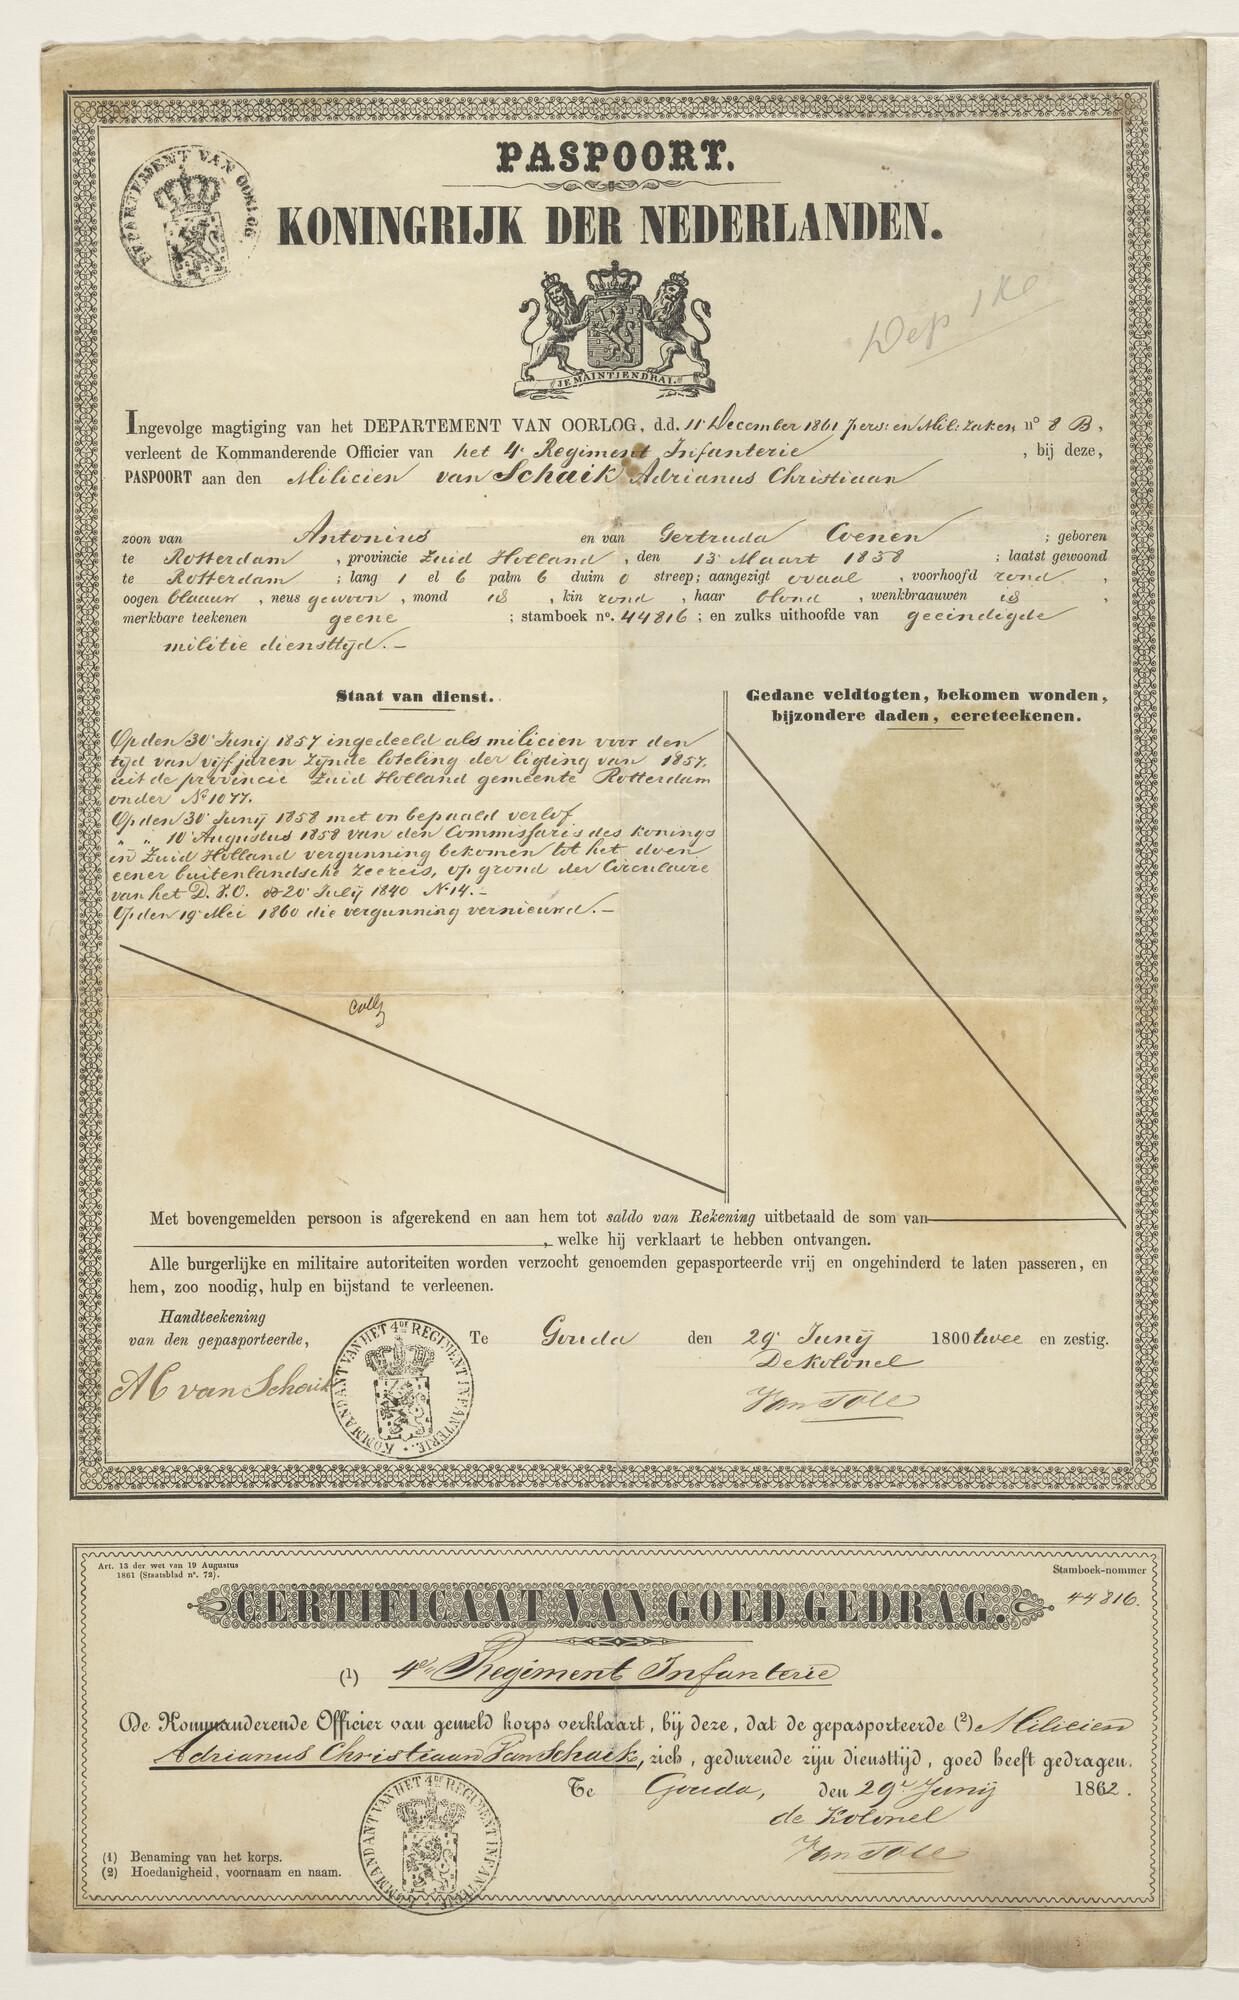 DEPARTEMENT VAN OORLOG.
PASPOORT.
KONINGRIJK DER NEDERLANDEN.
Dep
JE MAINTIENDRAI.
Ingevolge magtiging van het DEPARTEMENT VAN OORLOG, d.d. 11 December 1861 pers: en Mil: Zaken nº 8 B,
verleent de Kommanderende Officier van het 4e Regiment Infanterie, bij deze,
PASPOORT aan den Milicien van Schaik Adrianus Christiaan
zoon van Antonius en van Gertruda Coenen ; geboren
te Rotterdam, provincie Zuid Holland, den 13 Maart 1838 ; laatst gewoond
te Rotterdam ; lang 1 el 6 palm 6 duim 0 streep; aangezigt ovaal, voorhoofd rond,
oogen blaauw, neus gewoon, mond id, kin rond, haar blond, wenkbraauwen id,
merkbare teekenen geene ; stamboek nº. 44816 ; en zulks uithoofde van geeindigde
militie diensttyd.-
Staat van dienst.
Op den 30 Junij 1857 ingedeeld als milicien voor den
tyd van vyf jaren zynde loteling der ligting van 1857.
uit de provincie Zuid Holland gemeente Rotterdam
onder Nº 1077.
Op den 30 Junij 1858 met on bepaald verlof
" " 10 Augustus 1858 van den Commissaris des Konings
in Zuid Holland vergunning bekomen tot het doen
eener buitenlandsche zeereis, op grond der Circulaire
van het D. V. O. 20 July 1840 N 14.-
Op den 19 Mei 1860 die vergunning vernieuwd.-
Gedane veldtogten, bekomen wonden,
bijzondere daden, eereteekenen.
Met bovengemelden persoon is afgerekend en aan hem tot saldo van Rekening uitbetaald de som van
, welke hij verklaart te hebben ontvangen.
Alle burgerlijke en militaire autoriteiten worden verzocht genoemden gepasporteerde vrij en ongehinderd te laten passeren, en
hem, zoo noodig, hulp en bijstand te verleenen.
Handteekening
van den gepasporteerde,
AC van Schaik
KOMMANDANT VAN HET 4DE REGIMENT INFANTERIE.
Te Gouda den 29 Junij 1800 twee en zestig.
De Kolonel
Van Toll
Art. 13 der wet van 19 Augustus
1861 (Staatsblad nº. 72).
Stamboek-nommer
44816.
CERTIFICAAT VAN GOED GEDRAG.
(1) 4e Regiment Infanterie
De Kommanderende Officier van gemeld korps verklaart, bij deze, dat de gepasporteerde (2) Milicien
Adrianus Christiaan Van Schaik, zich, gedurende zijn diensttijd, goed heeft gedragen.
Te Gouda, den 29 Junij 1862.
de Kolonel
Van Toll
KOMMANDANT VAN HET 4DE REGIMENT INFANTERIE
(1) Benaming van het korps.
(2) Hoedanigheid, voornaam en naam.